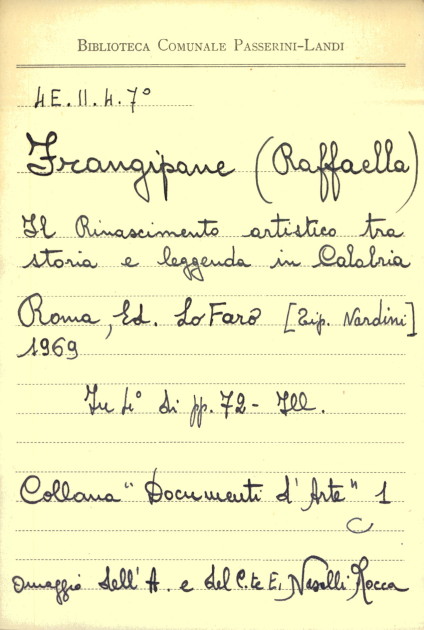 BIBLIOTECA COMUNALE PASSERINI-LANDI
4E.II.4.7°
Frangipane (Raffaella)
Il Rinascimento artistico tra
storia e leggenda in Calabria
Roma, Ed. Lo Faro [Tip. Nardini]
1969
In 4° di pp. 72 - Ill.
Collana "Documenti d'Arte" 1
Omaggio dell'A. e del C.te E. Nasalli Rocca